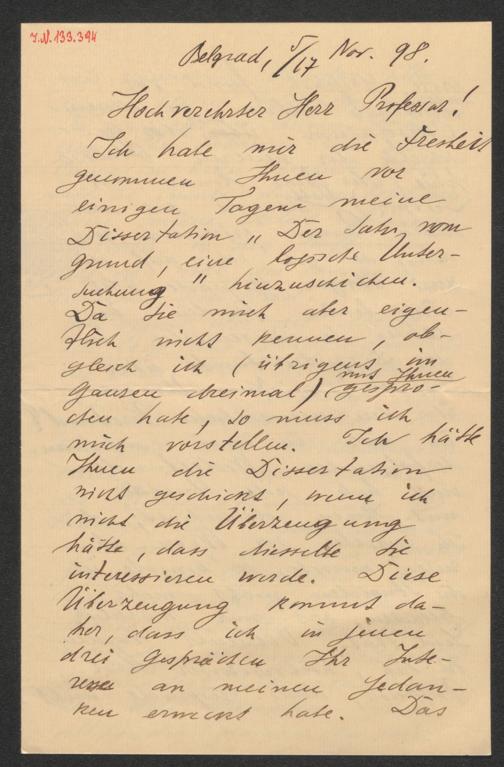 J.N. 133.394
Belgrad, 5/17 Nov. 98.
Hochverehrter Herr Professor!
Ich habe mir die Freiheit
genommen Ihnen vor
einigen Tagen meine
Dissertation „Der Satz vom
Grund, eine logische Unter-
suchung" hinzuschicken.
Da Sie mich aber eigen-
tlich nicht kennen, ob-
gleich ich (übrigens im
Ganzen dreimal) mit Ihnen gespro-
chen habe, so muss ich
mich vorstellen. Ich hätte
Ihnen die Dissertation
nicht geschickt, wenn ich
nicht die Überzeugung
hätte, dass dieselbe Sie
interessieren werde. Diese
Überzeugung kommt da-
her, dass ich in jenen
drei Gesprächen Ihr Inte-
resse an meinen Gedan-
ken erweckt habe. Das